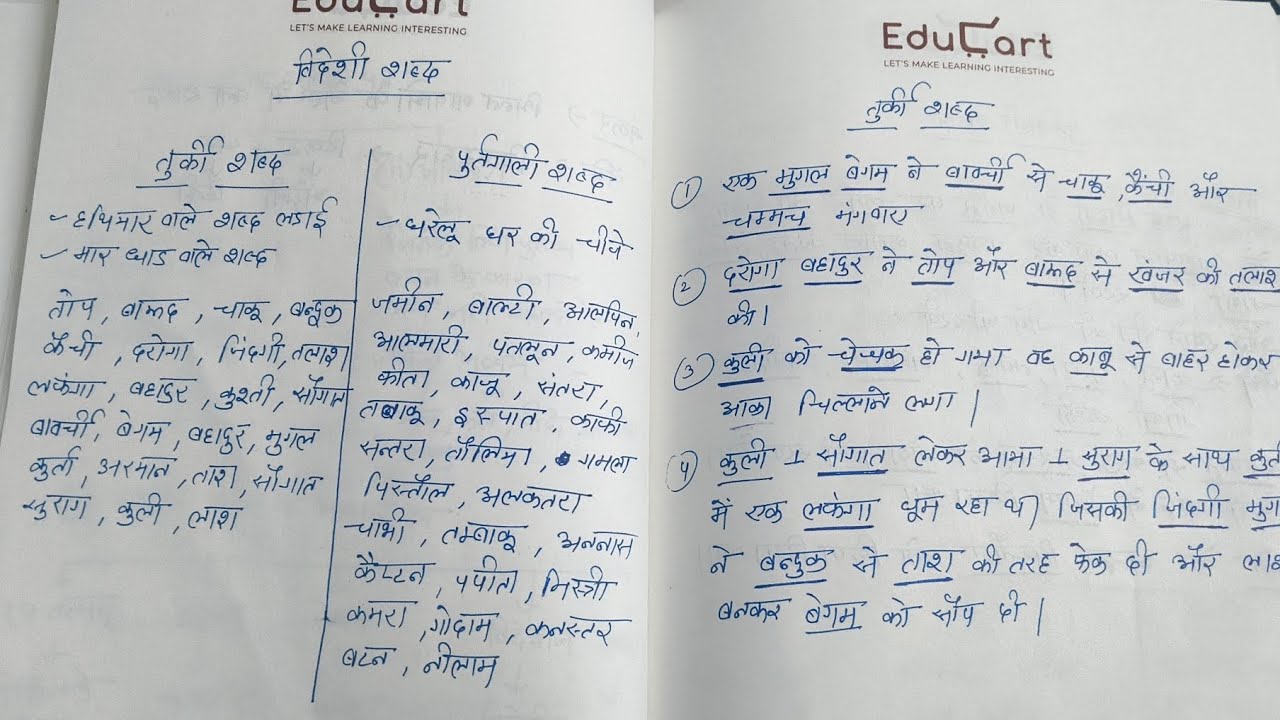 EduCart
LET'S MAKE LEARNING INTERESTING
विदेशी शब्द
तुर्की शब्द
- हथियार वाले शब्द लडाई
- मार धाड वाले शब्द
तोप, बारूद, चाकू, बन्दूक
कैंची, दरोगा, जिंदगी, तलाश
लफंगा, बहादुर, कुश्ती, सौगात
बावर्ची, बेगम, बहादुर, मुगल
कुर्ता, अरमान, ताश, सौगात
सुराग, कुली, लाश
पुर्तगाली शब्द
- घरेलू घर की चीजे
जमीन, बाल्टी, आलपिन,
आलमारी, पतलून, कमीज
फीता, काजू, संतरा,
तबाकू, इस्पात, काफी
सन्तरा, तौलिया, गमला
पिस्तौल, अलकतरा
चाभी, तम्बाकू, अनन्नास
कैप्टन, पपीता, मिस्त्री
कमरा, गोदाम, कनस्तर
बटन, नीलाम
EduCart
LET'S MAKE LEARNING INTERESTING
तुर्की शब्द
1 एक मुगल बेगम ने बावर्ची से चाकू, कैंची और
चम्मच मंगवाए
2 दरोगा बहादुर ने तोप और बारूद से खंजर की तलाश
की।
3 कुली को चेच्चक हो गया वह काबू से बाहर होकर
आका चिल्लाने लगा।
4 कुली । सौगात लेकर आया । सुराग के साथ
में एक लफंगा घूम रहा था जिसकी जिंदगी
ने बन्दुक से ताश की तरह फेक दी और
बनकर बेगम को सौप दी।